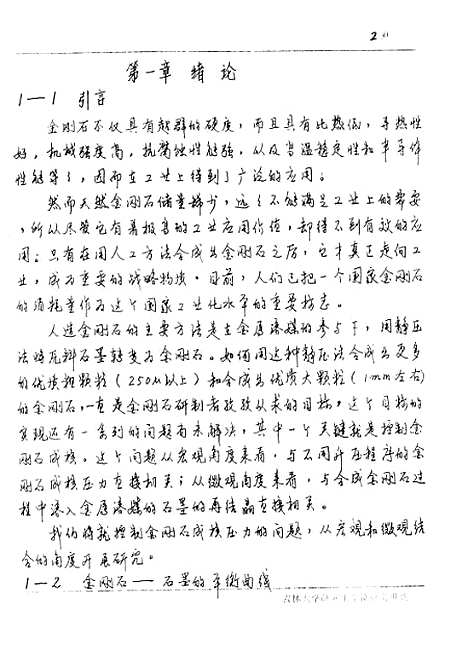 2
第一章 绪论
1—1 引言
金刚石不仅具有超群的硬度，而且具有比热低，导热性
好，机械强度高，抗腐蚀性能强，以及高温稳定性和半导体
性能等，因而在工业上得到了广泛的应用；
然而天然金刚石储量稀少，远远不能满足工业上的需要
，所以尽管它有着极高的工业应用价值，却得不到有效的应
用；只有在用人工方法合成出金刚石之后，它才真正走向工
业，成为重要的战略物质。目前，人们已把一个国家金刚石
的消耗量作为这个国家工业化水平的重要标志。
人造金刚石的主要方法是在金属溶媒的参与下，用静压
法将瓦解石墨转变为金刚石。如何用这种静压法合成出更多
的优质粗颗粒（250μ以上）和合成出优质大颗粒（1mm左右）
的金刚石，一直是金刚石研制者孜孜以求的目标，这个目标的
实现还有一系列的问题有未解决，其中一个关键就是控制金
刚石成核。这个问题从宏观角度来看，与不同升压程序的金
刚石成核压力直接相关；从微观角度来看，与合成金刚石过
程中渗入金属溶媒的石墨的再结晶直接相关。
我们将就控制金刚石成核压力的问题，从宏观和微观结
合的角度开展研究。
1—2 金刚石——石墨的平衡曲线
吉林大学